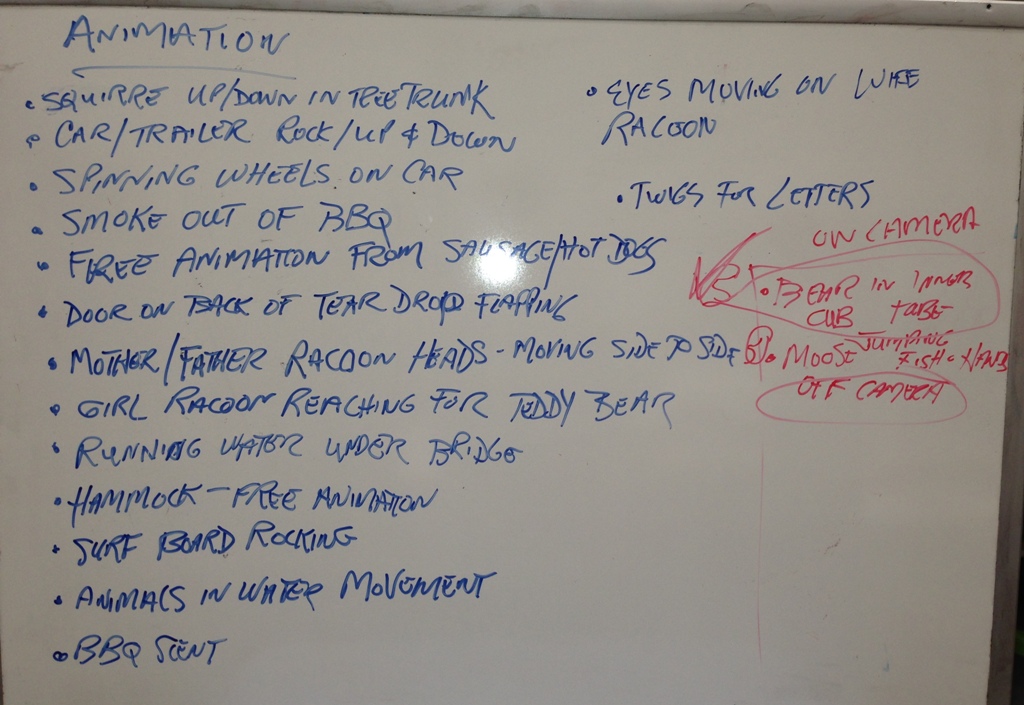 ANIMATION
• SQUIRRE UP/DOWN IN TREE TRUNK
• CAR/TRAILER ROCK/UP & DOWN
• SPINNING WHEELS ON CAR
• SMOKE OUT OF BBQ
• FREE ANIMATION FROM SAUSAGE/HOT DOGS
• DOOR ON BACK OF TEAR DROP FLAPPING
• MOTHER/FATHER RACOON HEADS - MOVING SIDE TO SIDE
• GIRL RACOON REACHING FOR TEDDY BEAR
• RUNNING WATER UNDER BRIDGE
• HAMMOCK - FREE ANIMATION
• SURF BOARD ROCKING
• ANIMALS IN WATER MOVEMENT
• BBQ SCENT
• EYES MOVING ON WIFE
RACOON
• TWIGS FOR LETTERS
ON CAMERA
• BEAR IN INNER
CUB TUBE
• MOOSE JUMPING
FISH
OFF CAMERA